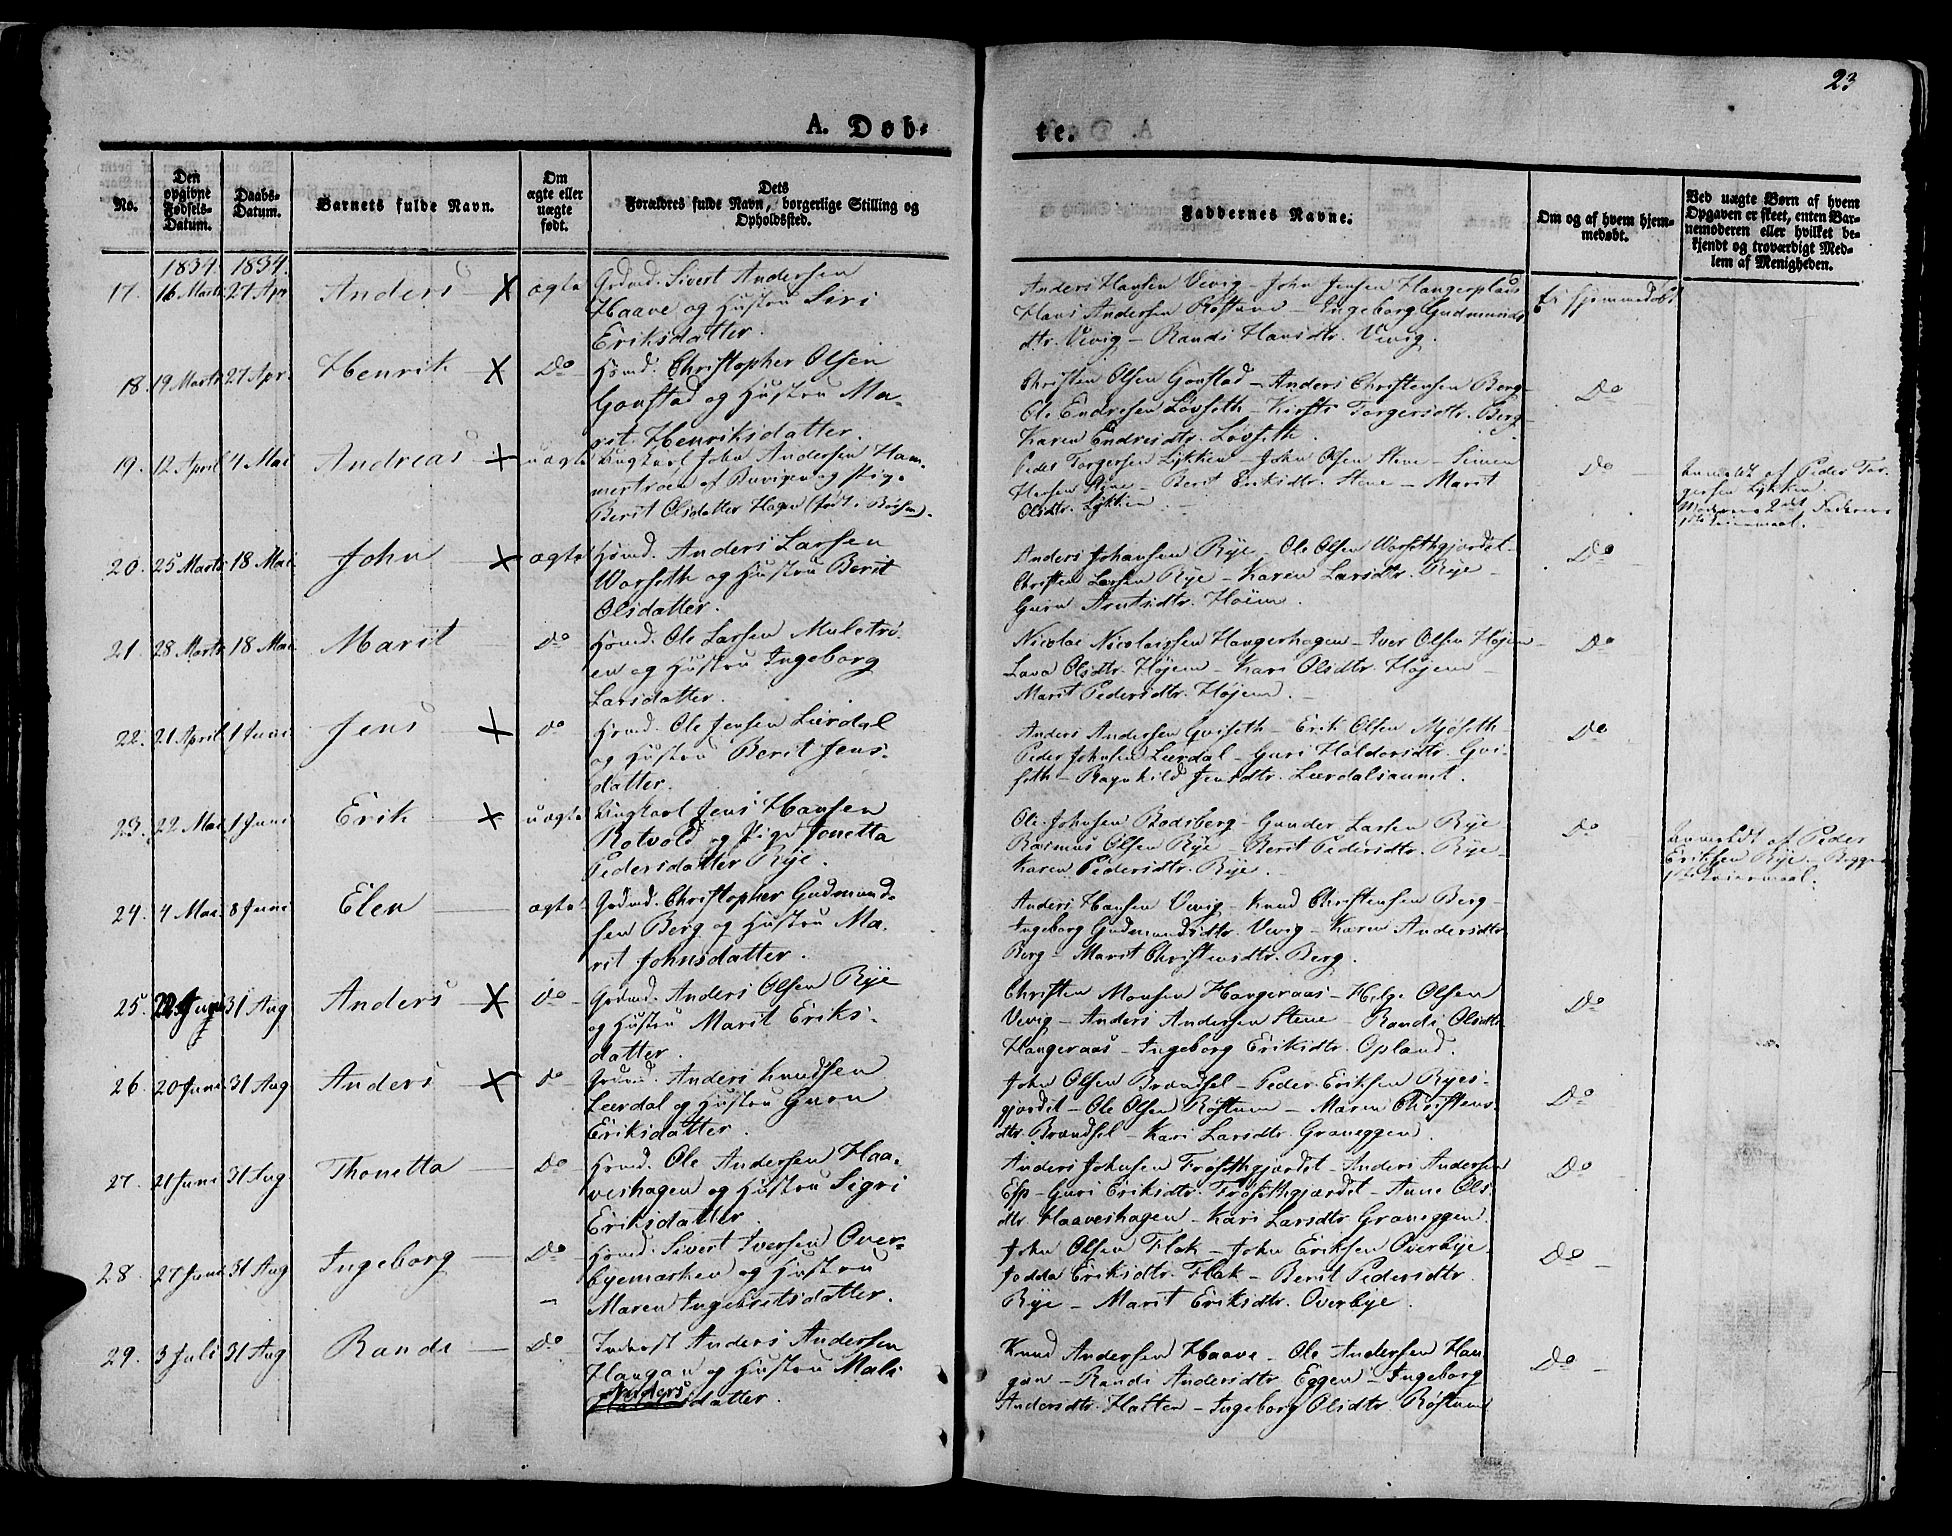 23
A. Døb-
te.
No.
Den opgivne Fødsels-Datum.
Daabs-Datum.
Barnets fulde Navn.
Om ægte eller uægte født.
Dets Forældres fulde Navn, borgerlige Stilling og Opholdssted.
Faddernes Navne.
Om og af hvem hjem-medøbt.
Ved uægte Børn af hvem Opgaven er skeet, enten Bar-nemoderen eller hvilket be-kjendt og troværdigt Med-lem af Menigheden.
1834. 1834.
17. 16 Marts 27 Apr Anders X ægte Grdmd. Sivert Andersen
Haave og Hustru Siri
Eriksdatter.
Anders Hansen Vevig - John Jensen Hangerplads
Hans Andersen Røstum - Ingeborg Gudmunds
dtr. Vevig - Randi Hansdtr. Vevig.
Ei hjemmedøbt
18. 19 Marts 27 Apr. Henrik X Do Hsmd. Christopher Olsen
Gonstad og Hustru Ma-
rit Henriksdatter.
Christen Olsen Gonstad - Anders Christensen Berg-
Ole Endresen Løvseth - Kirsti Torgersdtr. Berg-
Karen Endresdtr. Løvseth.
Do
19. 12 April 4 Mai Andreas X uægte Ungkarl John Andersen Ham-
mertrøen af Buvigen og Pig.
Berit Olsdatter Hagen (født i Børsen).
Peder Torgersen Lykken - John Olsen Stene - Simen
Hansen Stene - Berit Eriksdtr. Stene - Marit
Olsdtr. Lykken.
Do
Anmeldt af Peder Tor-
gersen Lykken.
Moderens 2det Faderens
1ste Leiermaal.
20. 25 Marts 18 Mai John X ægte Hsmd. Anders Larsen
Worseth og Hustru Berit
Olsdatter.
Anders Johansen Rye - Ole Olsen Worsethgjerdet -
Christen Larsen Rye - Karen Larsdtr. Rye -
Guru Arntsdtr. Høiem.
Do
21. 28 Marts 18 Mai Marit Do Hsmd. Ole Larsen Muletrø-
en og Hustru Ingeborg
Larsdatter.
Nicolai Nicolaissen Hangerhagen - Iver Olsen Højem
Lava Olsdtr. Højem - Kari Olsdtr. Højem -
Marit Pedersdtr. Højem. -
Do
22. 21 April 1 Juni Jens X Do Hsmd. Ole Jensen Lerdal
og Hustru Berit Jens-
datter.
Anders Andersen Qviseth - Erik Olsen Mjøseth-
Peder Johnsen Lerdal - Guri Haldorsdtr. Qvi-
seth - Ragnhild Jensdtr. Lerdalsaunet.
Do
23. 22 Mai 1 Juni Erik X uægte Ungkarl Jens Hansen
Rotvold og Pige Jonetta
Pedersdatter Rye.
Ole Johnsen Bodsberg - Gunder Larsen Rye-
Rasmus Olsen Rye - Berit Pedersdtr. Rye-
Karen Pedersdtr. Rye.
Do
Anmeldt af Peder
Eriksen Rye - Begges
1ste Leiermaal.
24. 4 Mai 8 Juni Elen ægte Grdmd. Christopher Gudmund-
sen Berg og Hustru Ma-
rit Johnsdatter.
Anders Hansen Vevig - Knud Christensen Berg -
Ingeborg Gudmundsdtr. Vevig - Karen Andersdtr.
Berg - Marit Christensdtr. Berg.
25. 31 Aug Anders X Do Grdmd. Anders Olsen Rye
og Hustru Marit Eriks-
datter.
Christen Monsen Hangeraas - Helge Olsen
Vevig - Anders Andersen Stene - Randi Olsdtr.
Hangeraas - Ingeborg Eriksdtr. Opland.
Do
26. 20 Juni 31 Aug Anders X Do Grdmd. Anders Knudsen
Lerdal og Hustru Guru
Eriksdatter.
John Olsen Brændsel - Peder Eriksen Ryes-
gjerdet - Ole Olsen Røstum - Maren Christens-
dtr. Brændsel - Kari Larsdtr. Graneggen.
Do
27. 21 Juni 31 Aug Thonetta Do Hsmd. Ole Andersen Haa-
veshagen og Hustru Sigri
Eriksdatter.
Anders Johnsen Frøsethgjærdet - Anders Andersen
Esp - Guri Eriksdtr. Frøsethgjærdet - Anne Ols-
dtr. Haaveshagen - Kari Larsdtr. Graneggen.
Do
28. 27 Juni 31 Aug Ingeborg Do Hsmd. Sivert Iversen Over-
byemarken og Hustru
Maren Ingebrigtsdatter.
John Olsen Flak - John Eriksen Overbye -
Jodda Eriksdtr. Flak - Berit Pedersdtr.
Rye - Marit Eriksdtr. Overbye.
Do
29. 3 Juli 31 Aug Randi Do Inderst Anders Andersen
Haugan og Hustru Mali
Anders
datter.
Knud Andersen Haave - Ole Andersen Hau-
gan - Randi Andersdtr. Eggen - Ingeborg
Andersdtr. Halten - Ingeborg Olsdtr. Røstum
Do